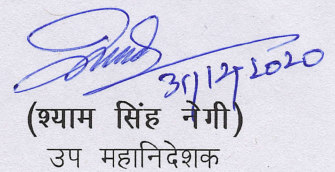 31/12/2020
(श्याम सिंह नेगी)
उप महानिदेशक